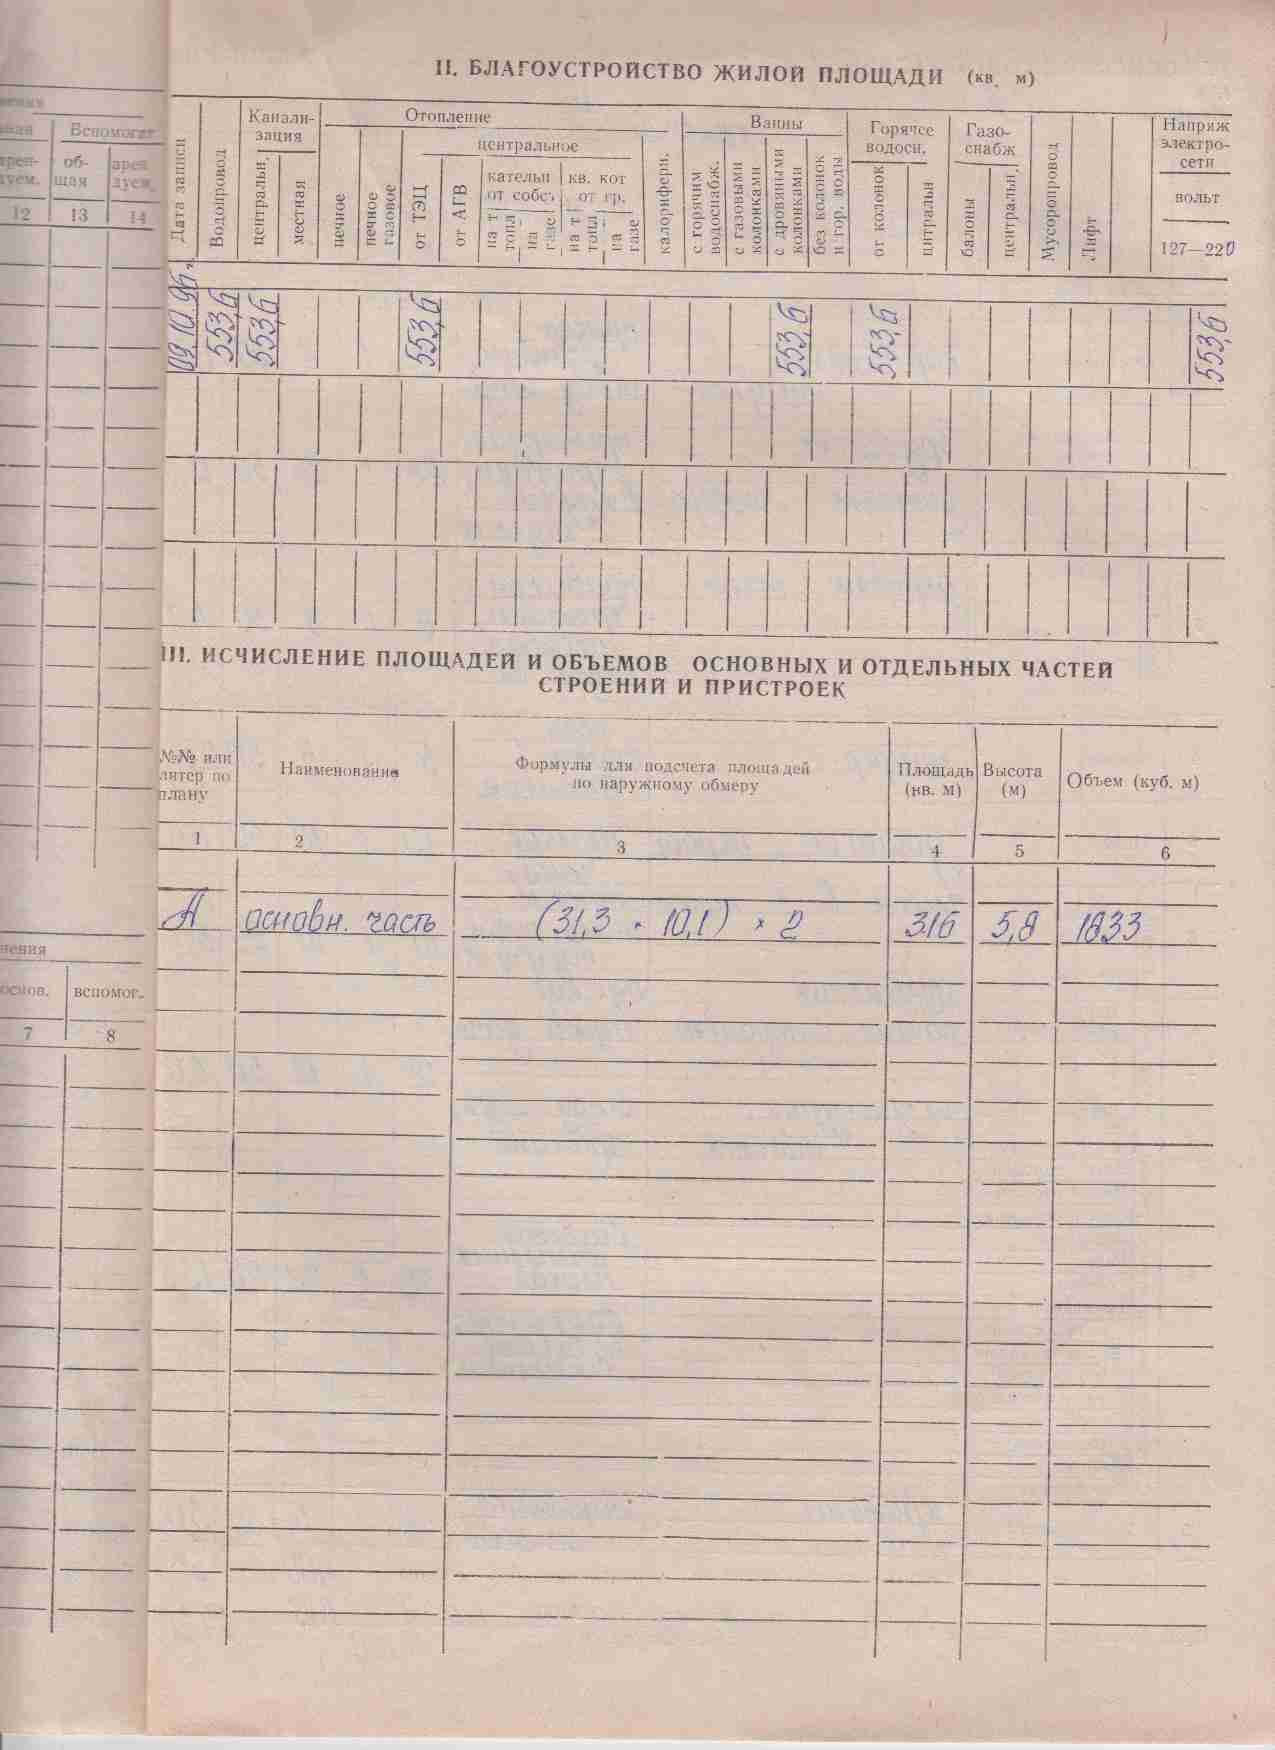 II. БЛАГОУСТРОЙСТВО ЖИЛОЙ ПЛОЩАДИ (кв. м)
Дата записи
Водопровод
Канали-
зация
центральн.
местная
Отопление
печное
печное
газовое
центральное
от ТЭЦ
от АГВ
кательн
от собс.
на т
топл
на
газе
кв. кот
от гр.
на т
топл.
на
газе
калорифери.
Ванны
с горячим
водоснабж.
с газовыми
колонками
с дровяными
колонками
без колонок
и гор. воды
Горячее
водосн.
от колонок
цнтральн
Газо-
снабж
балоны
центральн.
Мусоропровод
Лифт
Напряж
электро-
сети
вольт
127—220
09.10.96г.
553,6
553,6
553,6
553,6
553,6
553,6
III. ИСЧИСЛЕНИЕ ПЛОЩАДЕЙ И ОБЪЕМОВ ОСНОВНЫХ И ОТДЕЛЬНЫХ ЧАСТЕЙ
СТРОЕНИЙ И ПРИСТРОЕК
№№ или
литер по
плану
Наименование
Формулы для подсчета площадей
по наружному обмеру
Площадь
(кв. м)
Высота
(м)
Объем (куб. м)
1 2 3 4 5 6
А основн. часть (31,3 × 10,1) × 2 316 5,8 1833
Вспомогат
об-
щая
арен
дуем.
12 13 14
основ. вспомог.
7 8